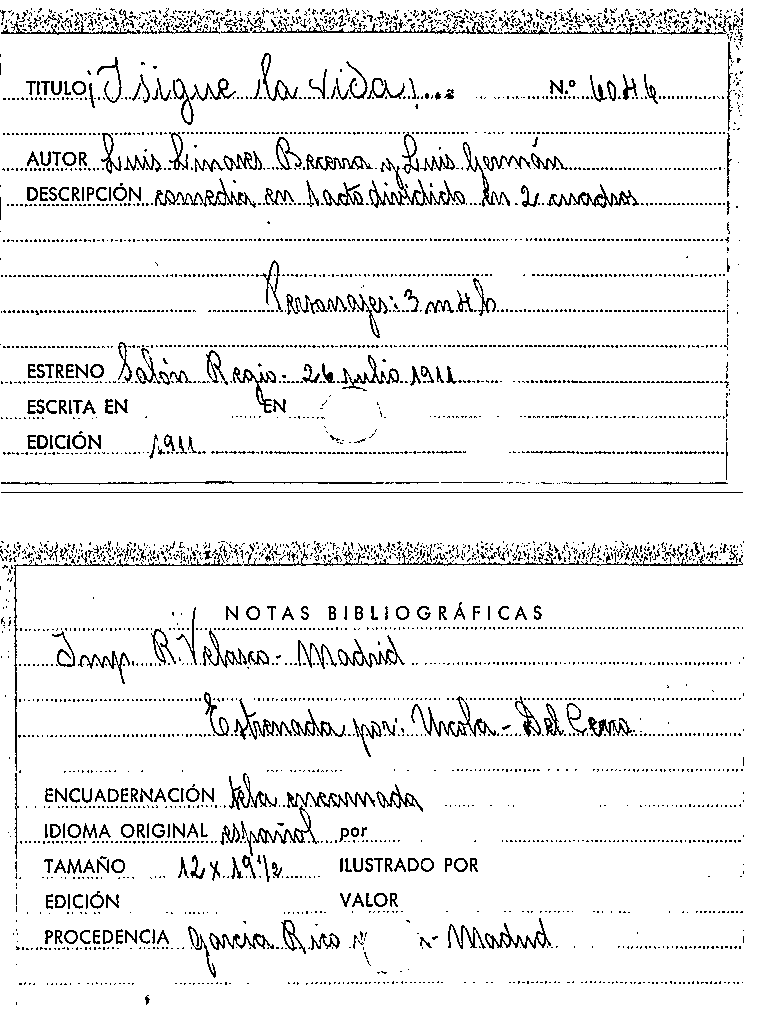 TITULO ¡I sigue la vida!... N.º 6046
AUTOR Luis Linares Becerra y Luis Germán
DESCRIPCIÓN comedia en 1 acto dividido en 2 cuadros
Personajes: 3 m 4 h
ESTRENO Salón Regio - 26 julio 1911
ESCRITA EN EN
EDICIÓN 1911
NOTAS BIBLIOGRÁFICAS
Imp. R. Velasco - Madrid
Estrenada por: Urcola - Del Cerro
ENCUADERNACIÓN tela encarnada
IDIOMA ORIGINAL español por
TAMAÑO 12 x 19 1/2 ILUSTRADO POR
EDICIÓN VALOR
PROCEDENCIA García Rico y - Madrid